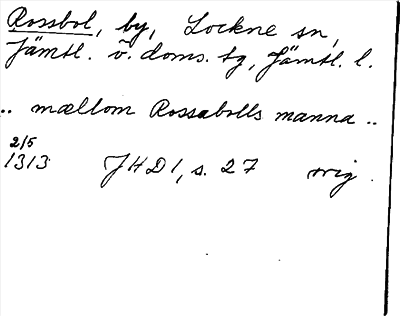 Rossbol, by, Lockne sn,
Jämtl. v. doms. tg, Jämtl. l.
.. mællom Rossabolls manna ..
2/5
1313 JHD 1, s. 27 orig.